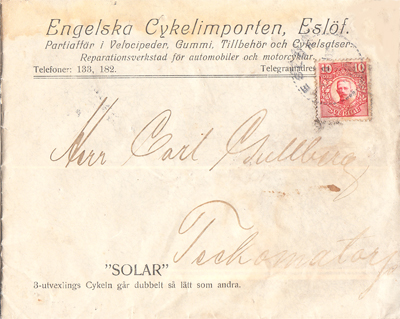 Engelska Cykelimporten, Eslöf.
Partiaffär i Velocipeder, Gummi, Tillbehör och Cykelsatser.
Reparationsverkstad för automobiler och motorcyklar.
Telefoner: 133, 182. Telegramadress
10 10
SVERIGE
Herr Carl Gullberg
"SOLAR"
3-utvexlings Cykeln går dubbelt så lätt som andra.